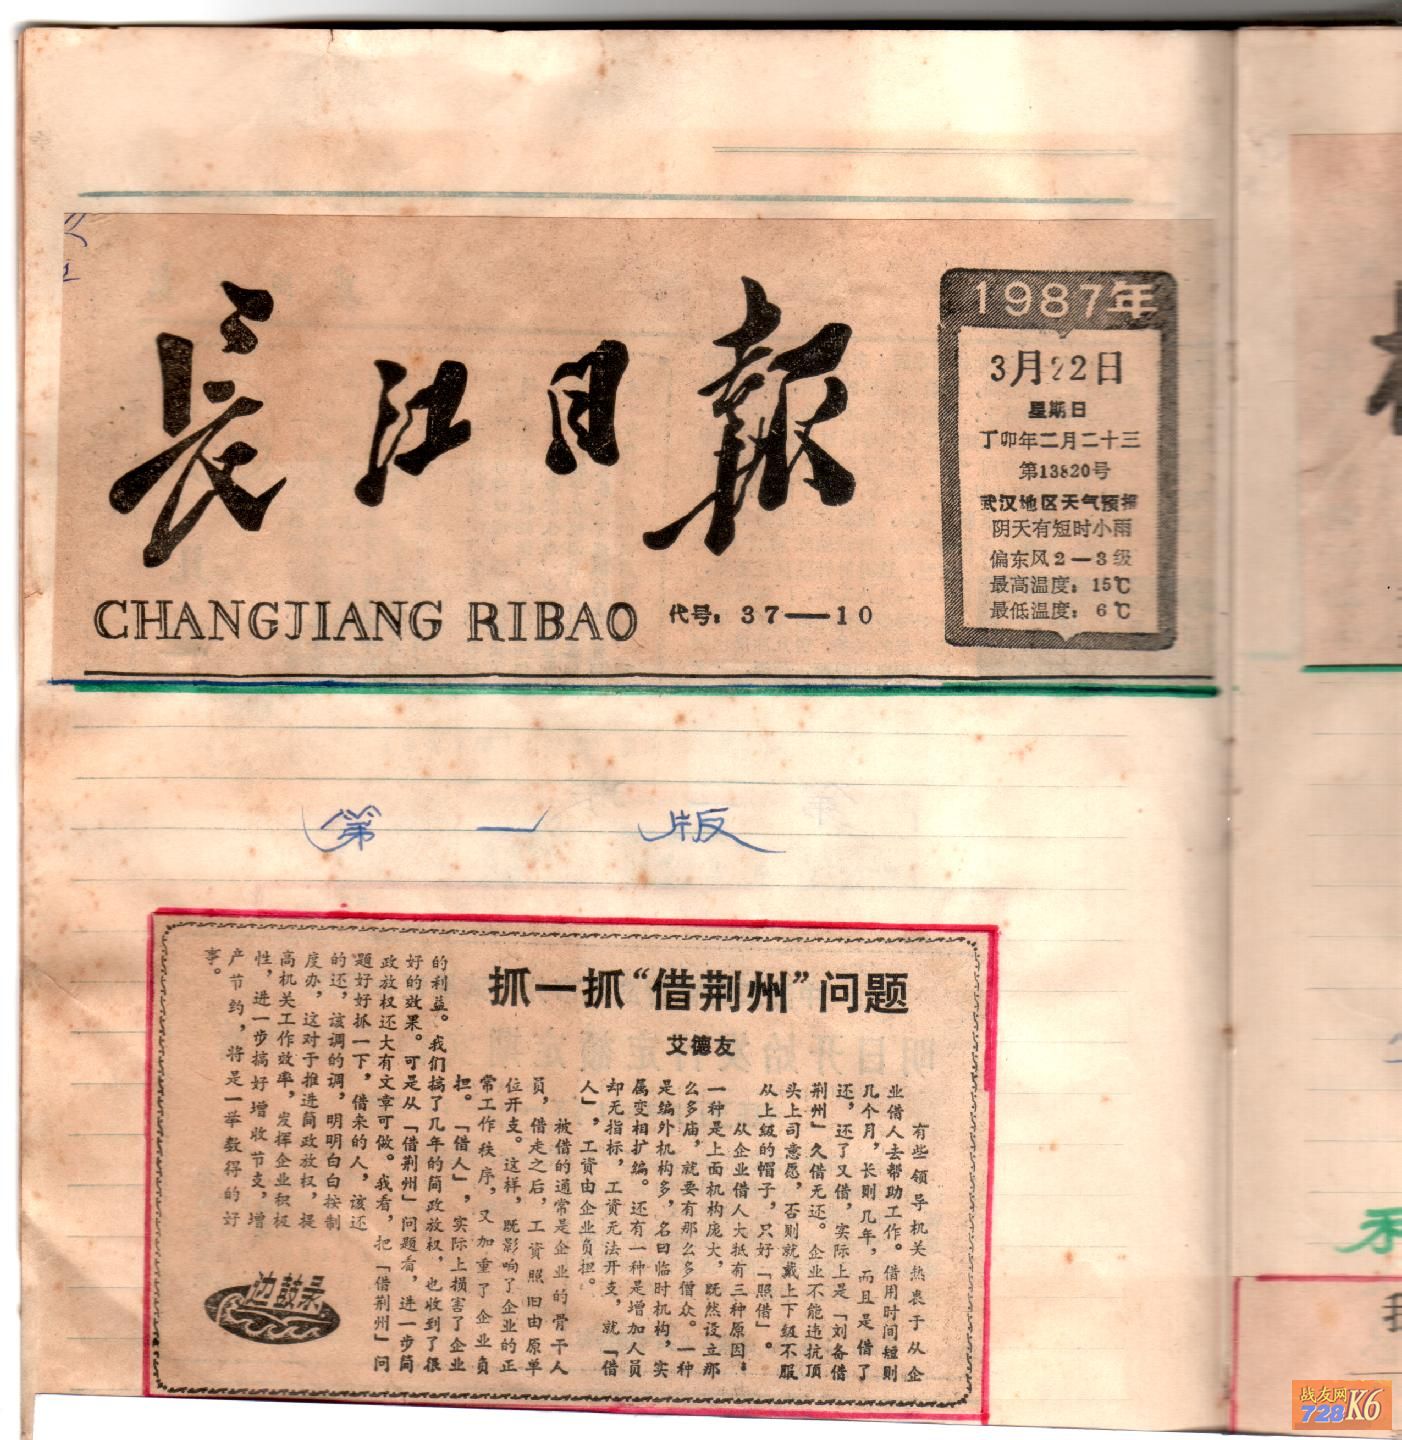 長江日報
CHANGJIANG RIBAO
代号：37—10
1987年
3月22日
星期日
丁卯年二月二十三
第13820号
武汉地区天气预报
阴天有短时小雨
偏东风2—3级
最高温度：15℃
最低温度：6℃
第一版
抓一抓“借荆州”问题
艾德友
有些领导机关热衷于从企
业借人去帮助工作。借用时间短则
几个月，长则几年，而且是借了
还，还了又借，实际上是「刘备借
荆州」久借无还。企业不能违抗顶
头上司意愿，否则就戴上下级不服
从上级的帽子，只好「照借」。
从企业借人大抵有三种原因：
一种是上面机构庞大，既然设立那
么多庙，就要有那么多僧众。一种
是编外机构多，名曰临时机构，实
属变相扩编。还有一种是增加人员
却无指标，工资无法开支，就「借
人」，工资由企业负担。
被借的通常是企业的骨干人
员，借走之后，工资照旧由原单
位开支。这样，既影响了企业的正
常工作秩序，又加重了企业负
担。「借人」，实际上损害了企业
的利益。我们搞了几年的简政放权，也收到了很
好的效果。可是从「借荆州」问题看，进一步简
政放权还大有文章可做。我看，把「借荆州」问
题好好抓一下，借来的人，该还
的还，该调的调，明明白白按制
度办，这对于推进简政放权，提
高机关工作效率，发挥企业积极
性，进一步搞好增收节支，增
产节约，将是一举数得的好
事。
边鼓录
战友网
728K6